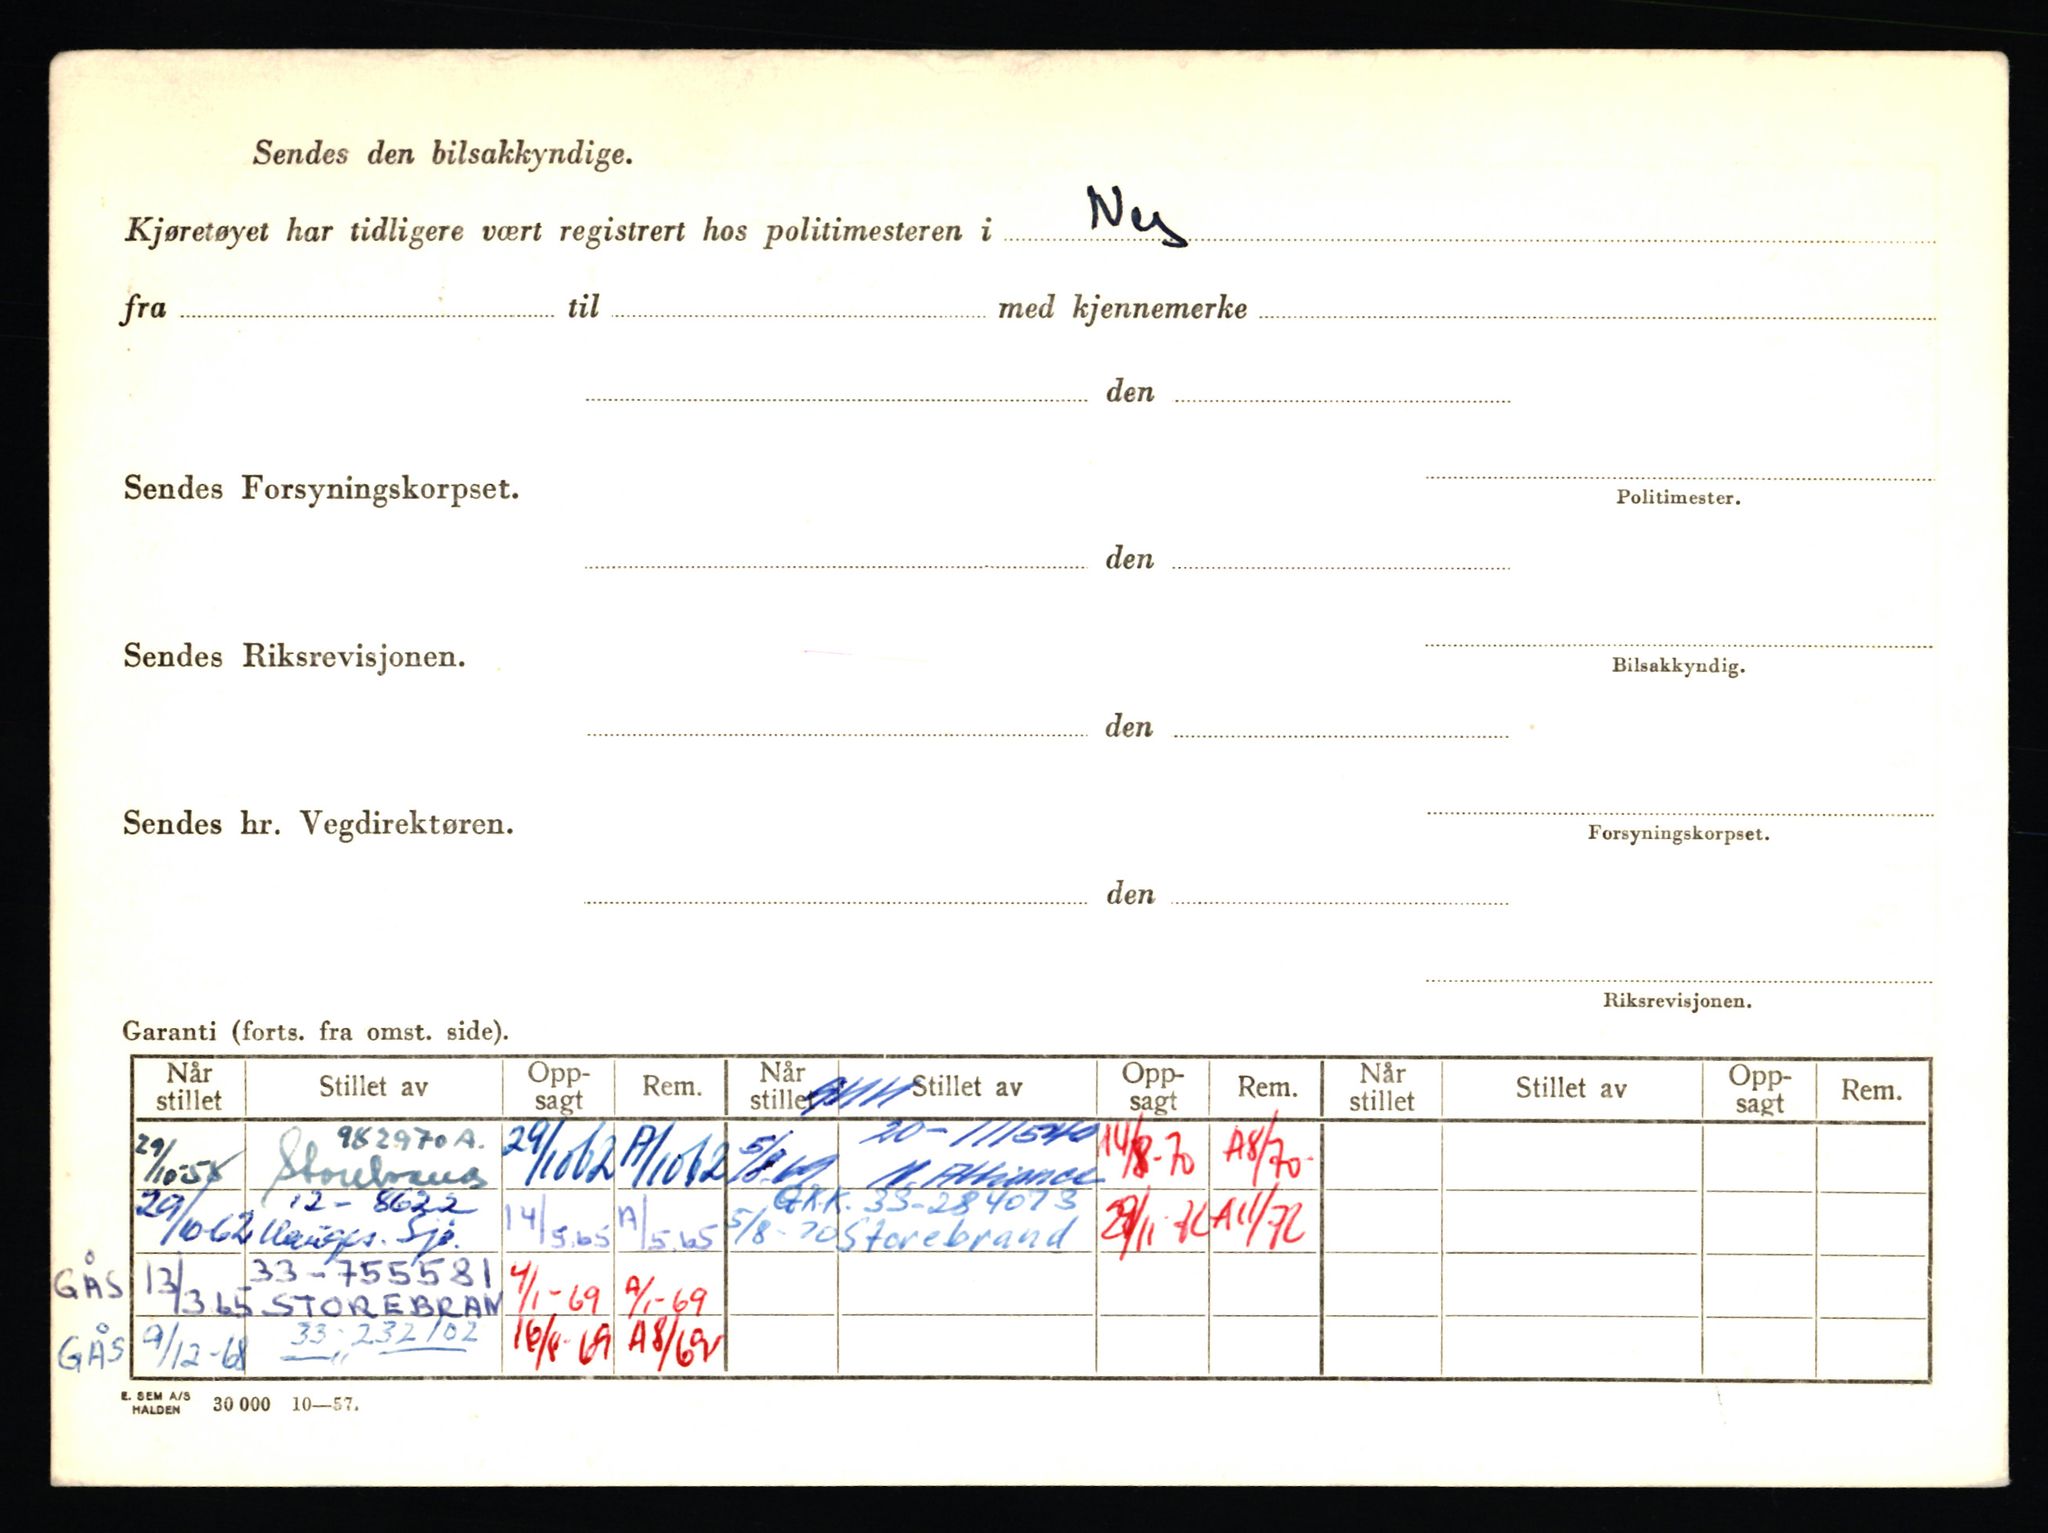 Sendes den bilsakkyndige.
Kjøretøyet har tidligere vært registrert hos politimesteren i Ny
fra til med kjennemerke
den
Sendes Forsyningskorpset.
Politimester.
den
Sendes Riksrevisjonen.
Bilsakkyndig.
den
Sendes hr. Vegdirektøren.
Forsyningskorpset.
den
Riksrevisjonen.
Garanti (forts. fra omst. side).
Når stillet Stillet av Opp-sagt Rem. Når stillet Stillet av Opp-sagt Rem. Når stillet Stillet av Opp-sagt Rem.
29/10-58 982970 A. Storebrand 29/10 62 A/10 62 5/8-69 20-111540 N. Alliance 14/8-70 A8/70
29/10-62 12-8622 Sjø. 14/5.65 A/5.65 5/8-70 33-284073 Storebrand /11-72 A11/72
GÅS 13/3.65 33-755581 STOREBRAN 4/1-69 A/1-69
GÅS 9/12-68 33-232102 16/8-69 A8/69
E. SEM A/S HALDEN 30 000 10—57.